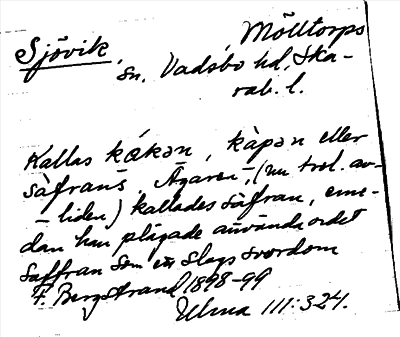 Sjövik, Mölltorps
sn. Vadsbo hd, Ska-
rab. l.
Kallas kákən, kàpən eller
sàfrans. Ägaren, (nu trol. av-
liden) kallades sàfran, eme-
dan han plägade använda ordet
saffran som en slags svordom
F. Bergstrand 1898-99
Ulma 111:324.